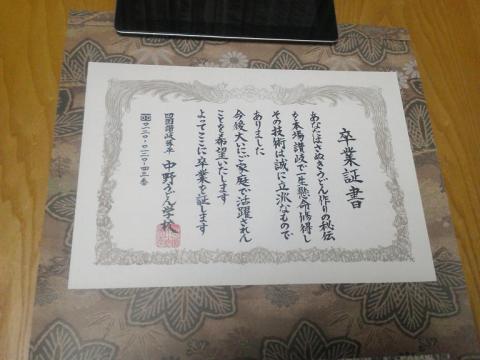 卒業証書
あなたはさぬきうどん作りの秘伝
を本場讃岐で一生懸命修得し
その技術は誠に立派なもので
ありました
今後大いにご家庭で活躍されん
ことを希望いたします
よってここに卒業を証します
四国讃岐琴平
中野うどん学校